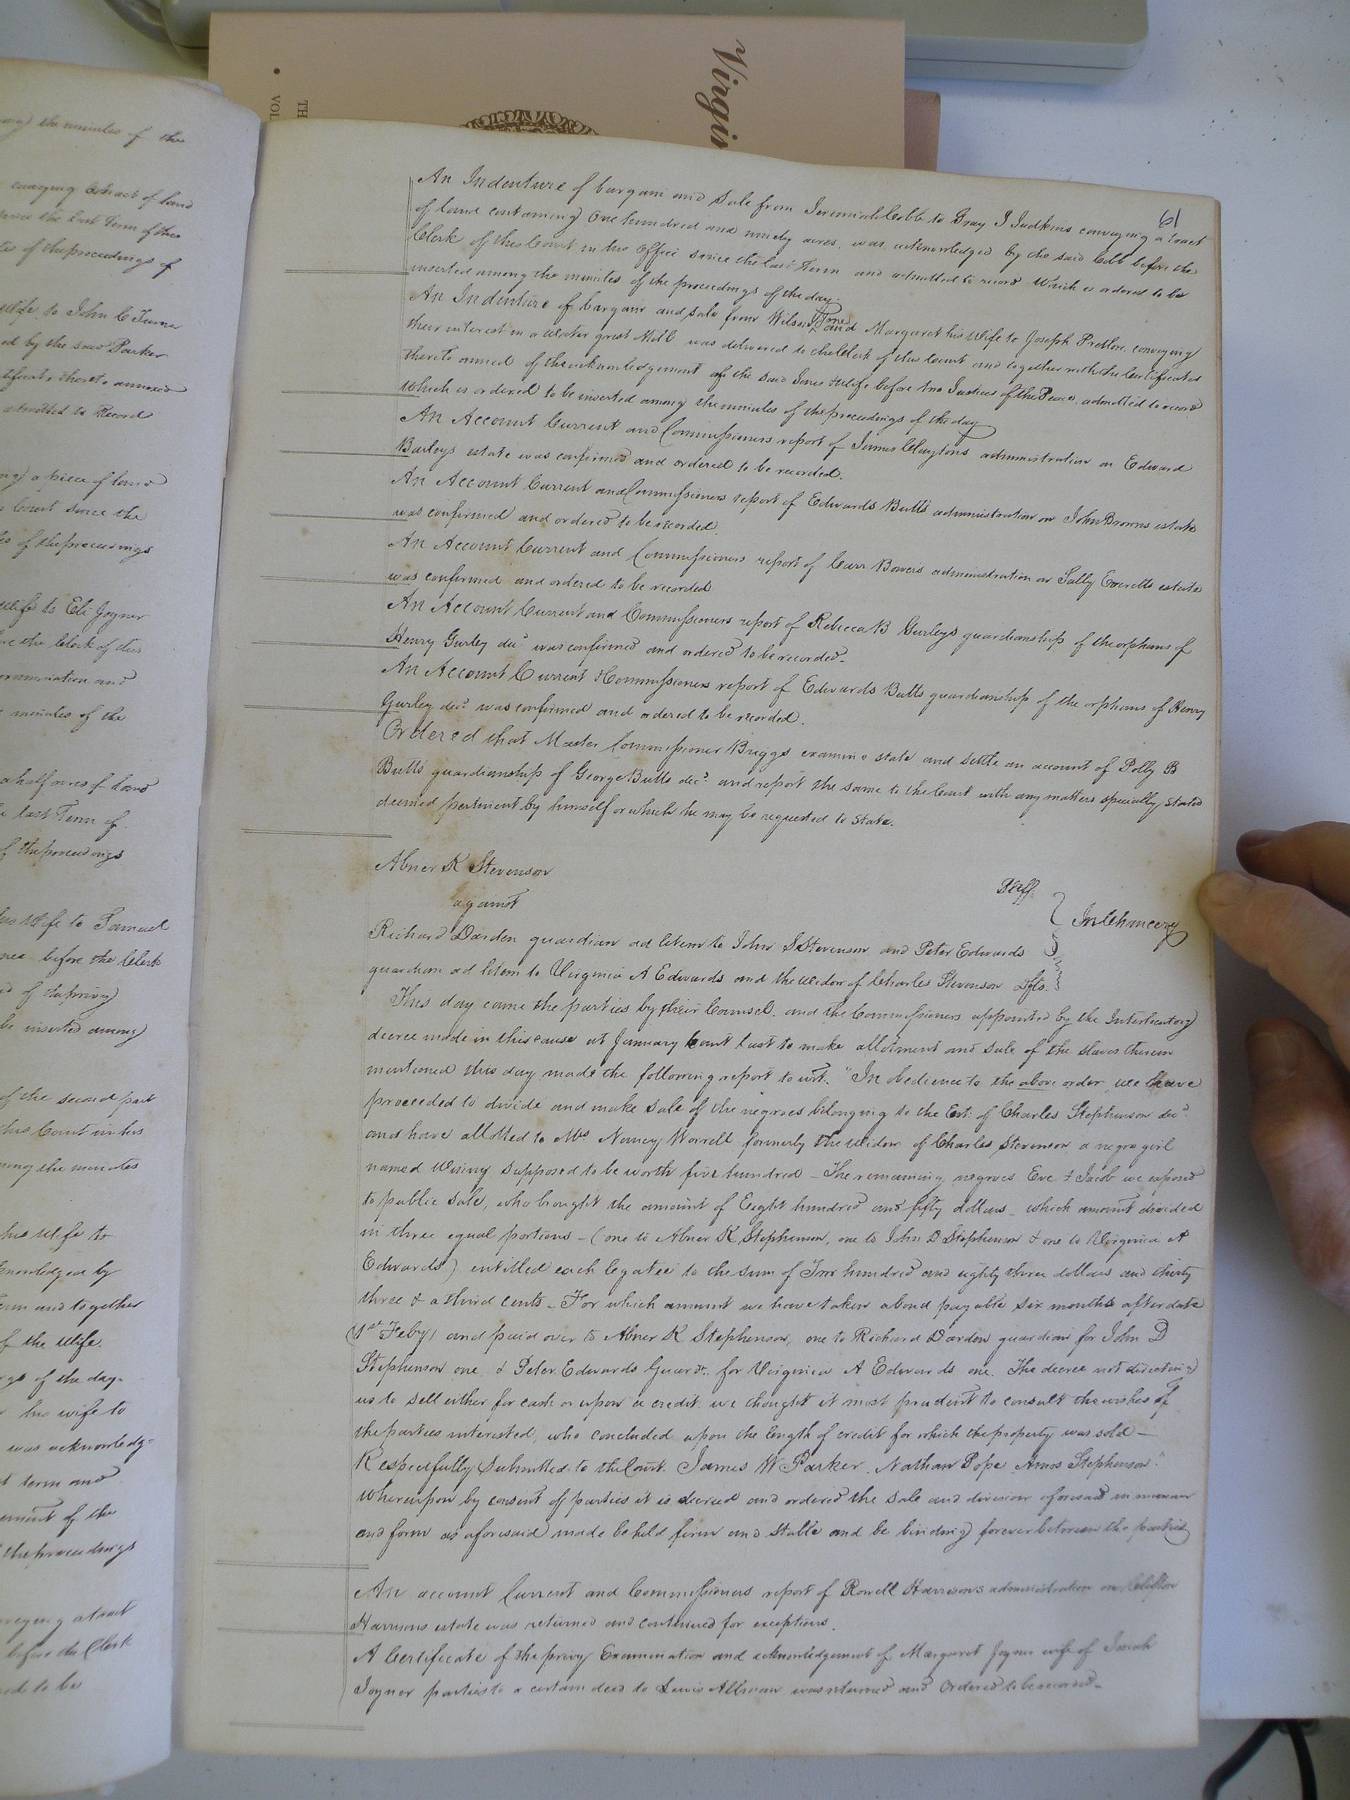 Virgin
TH
VOL
the minutes of the
conveying a tract of land
since the last Term of the
of the proceedings of
wife to John C Turner
ed by the said Parker
tificate thereto annexed
admitted to Record
a piece of land
Court since the
of the proceedings
wife to Eli Joyner
the Clerk of this
examination and
minutes of the
a half acres of land
last Term of
of the proceedings
his wife to Samuel
before the Clerk
of the privy
be inserted among
of the second part
this Court in his
among the minutes
his Wife to
acknowledged by
Term and together
of the Wife.
of the day.
his wife to
was acknowledg-
term and
of the
the proceedings
conveying a tract
before the Clerk
to be
61
An Indenture of bargain and Sale from Jeremiah Cobb to Gray J Judkins conveying a tract
of land containing One hundred and ninety acres, was acknowledged by the said Cobb before the
Clerk of this Court in his Office since the last Term and admitted to record Which is ordered to be
inserted among the minutes of the proceedings of the day.
An Indenture of bargain and sale from Wilson Jones and Margaret his Wife to Joseph Pretlow conveying
their interest in a water grist Mill was delivered to the Clerk of this Court and together with the Certificates
thereto annexed of the acknowledgement of the said Jones & wife before two Justices of the Peace admitted to record
which is ordered to be inserted among the minutes of the proceedings of the day
An Account Current and Commissioners report of James Claytons administration on Edward
Baileys estate was confirmed and ordered to be recorded.
An Account Current and Commissioners report of Edwards Butts administration on John Browns estate
was confirmed and ordered to be recorded.
An Account Current and Commissioners report of Carr Bowers administration on Sally Everetts estate
was confirmed and ordered to be recorded
An Account Current and Commissioners report of Rebecca B Gurleys guardianship of the orphans of
Henry Gurley decd was confirmed and ordered to be recorded.
An Account Current & Commissioners report of Edwards Butts guardianship of the orphans of Henry
Gurley decd. was confirmed and ordered to be recorded.
Ordered that Master Commissioner Briggs examine state and settle an account of Polly B
Butts guardianship of George Butts decd. and report the same to the Court with any matters specially stated
deemed pertinent by himself or which he may be requested to state.
Abner K Stevenson Plff.
against In Chancery
Richard Darden guardian ad litem to John S Stevenson and Peter Edwards
guardian ad litem to Virginia A Edwards and the widow of Charles Stevenson Dfts.
This day came the parties by their Counsel. and the Commissioners appointed by the Interlocutory
decree made in this cause at January Court last to make allotment and sale of the slaves therein
mentioned this day made the following report to wit. "In obedience to the above order we have
proceeded to divide and make sale of the negroes belonging to the Est. of Charles Stephenson decd.
and have allotted to Mrs Nancy Worrell formerly the widow of Charles Stevenson a negro girl
named Winny supposed to be worth five hundred - The remaining negroes Eve & Jacob we exposed
to public sale, who brought the amount of Eight hundred and fifty dollars - which amount divided
in three equal portions - (one to Abner K Stephenson, one to John D Stephenson & one to Virginia A
Edwards) entitled each legatee to the sum of Two hundred and eighty three dollars and thirty
three & a third cents - For which amount we have taken a bond payable six months after date
(1st Feby) and paid over to Abner K Stephenson, one to Richard Darden guardian for John D
Stephenson one & Peter Edwards Guardn. for Virginia A Edwards one. The decree not directing
us to sell either for cash or upon a credit we thought it most prudent to consult the wishes of
the parties interested, who concluded upon the length of credit for which the property was sold -
Respectfully Submitted to the Court. James W Parker. Nathan Pope Amos Stephenson."
Whereupon by consent of parties it is decreed and ordered the sale and division aforesaid in manner
and form as aforesaid made be held firm and stable and be binding forever between the parties
An account Current and Commissioners report of Rowell Harrisons administration on
Harrisons estate was returned and continued for exceptions.
A Certificate of the privy Examination and acknowledgement of Margaret Joyner wife of
Joyner parties to a certain deed to Lewis Allmon was returned and Ordered to be recorded.